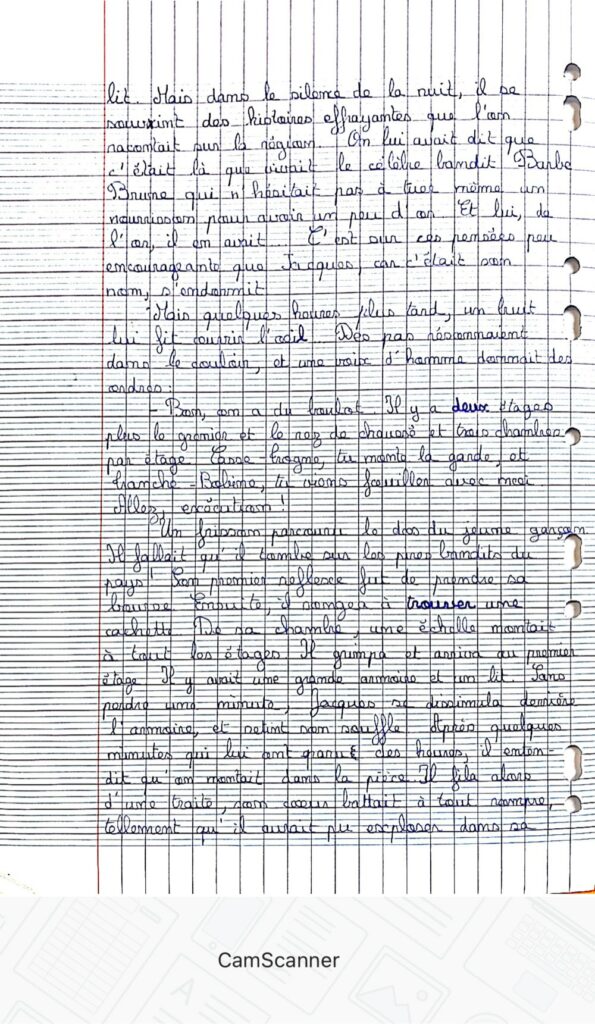 lit. Mais dans le silence de la nuit, il se
souvint des histoires effrayantes que l'on
racontait sur la région. On lui avait dit que
c'était là que vivait le célèbre bandit Barbe
Brune qui n'hésitait pas à tuer même un
nourrisson pour avoir un peu d'or. Et lui, de
l'or, il en avait... C'est sur ces pensées peu
encourageante que Jacques, car c'était son
nom, s'endormit.
Mais quelques heures plus tard, un bruit
lui fit ouvrir l'œil. Des pas résonnaient
dans le couloir, et une voix d'homme donnait des
ordres :
- Bon, on a du boulot. Il y a deux étages
plus le grenier et le rez de chaussé et trois chambres
par étage. Casse-trogne, tu monte la garde, et
tranche-Bobine, tu viens fouiller avec moi
Allez, exécution !
Un frisson parcouru le dos du jeune garçon
Il fallait qu'il tombe sur les pires bandits du
pays ! Son premier reflexe fut de prendre sa
bourse. Ensuite, il songea à trouver une
cachette. De sa chambre, une échelle montait
à tout les étages. Il grimpa et arriva au premier
étage. Il y avait une grande armoire et un lit. Sans
perdre une minute, Jacques se dissimula derrière
l'armoire, et retint son souffle. Après quelques
minutes qui lui ont paru des heures, il enten-
dit qu'on montait dans la pièce. Il fila alors
d'une traite, son coeur battait à tout rompre,
tellement qu'il aurait pu exploser dans sa
CamScanner